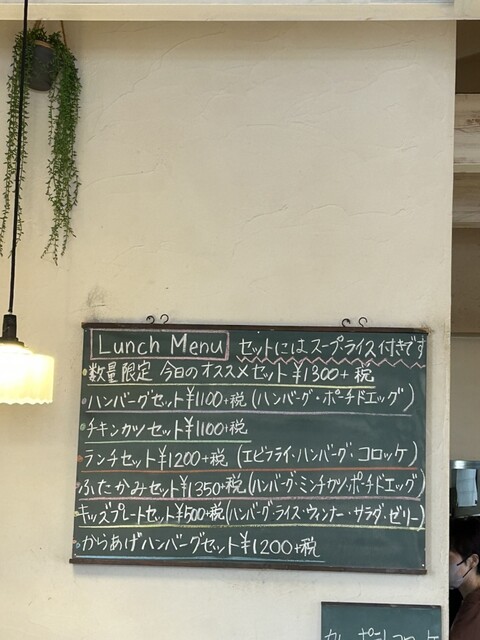 Lunch Menu セットにはスープライス付きです
数量限定 今日のオススメセット ¥1300+税
ハンバーグセット¥1100+税(ハンバーグ・ポーチドエッグ)
チキンカツセット¥1100+税
ランチセット¥1200+税 (エビフライ・ハンバーグ・コロッケ)
ふたかみセット¥1350+税(ハンバーグ・ミンチカツ・ポーチドエッグ)
キッズプレートセット¥500+税(ハンバーグ・ライス・ウィンナー・サラダ・ゼリー)
からあげハンバーグセット¥1200+税